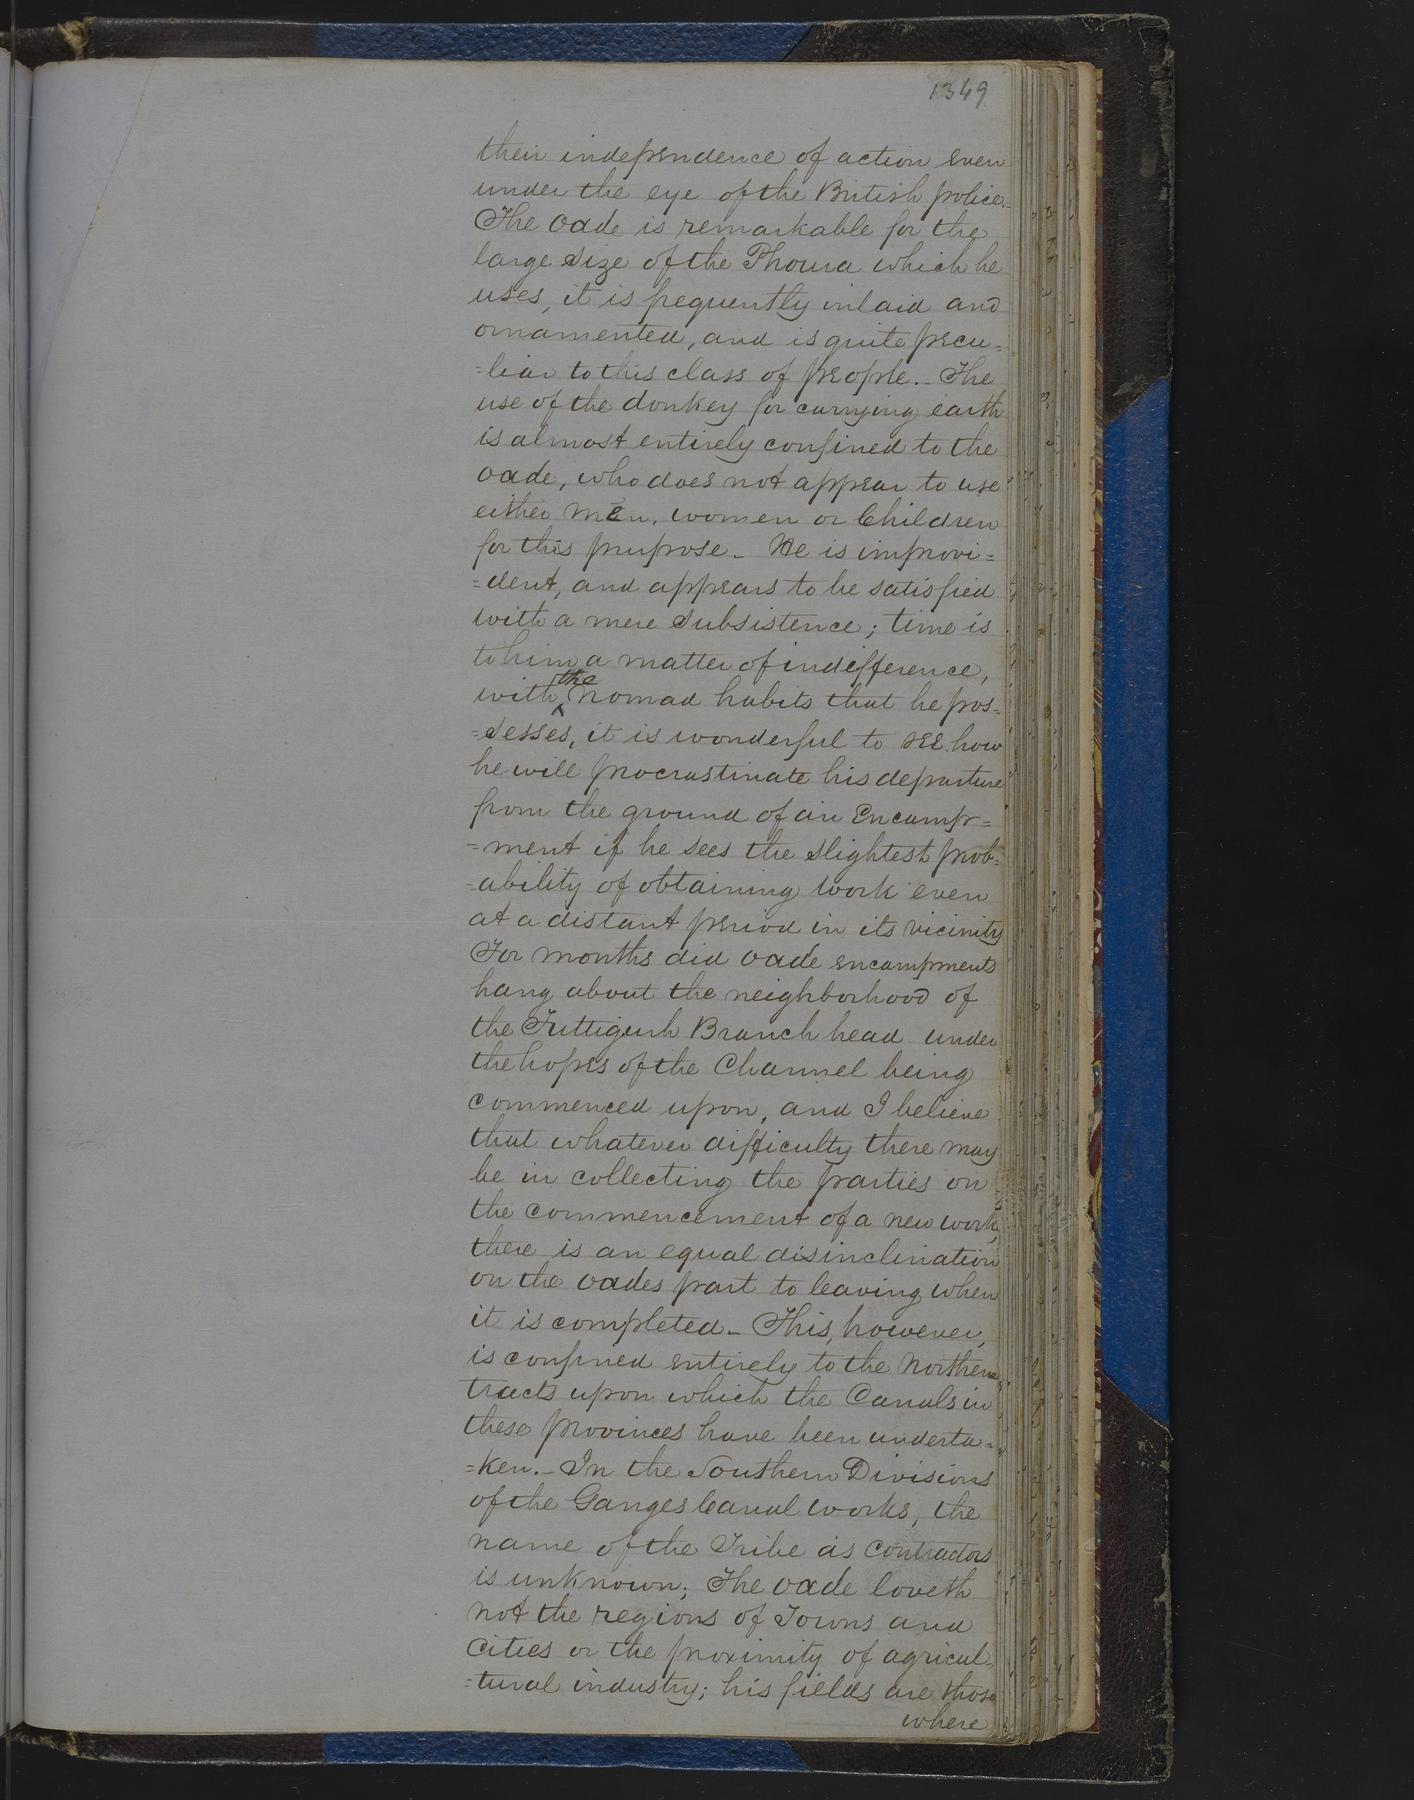 1349
their independence of action even
under the eye of the British police.
The Oade is remarkable for the
large size of the Phoura which he
uses, it is frequently inlaid and
ornamented, and is quite pecu=
=liar to this class of people._ The
use of the donkey for carrying earth
is almost entirely confined to the
Oade, who does not appear to use
either men, women or Children
for this purpose_ He is improvi=
=dent, and appears to be satisfied
with a mere subsistence; time is
to him a matter of indifference,
with the nomad habits that he pos=
=sesses, it is wonderful to see how
he will procrastinate his departure
from the ground of an Encamp=
=ment if he sees the slightest prob=
=ability of obtaining work even
at a distant period in its vicinity
For months did Oade encampments
hang about the neighborhood of
the Futtigurh Branch head under
the hopes of the Channel being
commenced upon, and I believe
that whatever difficulty there may
be in collecting the parties on
the commencement of a new work,
there is an equal disinclination
on the Oades part to leaving when
it is completed_ This, however,
is confined entirely to the Northern
tracts upon which the Canals in
these provinces have been underta=
=ken._ In the Southern Divisions
of the Ganges Canal works, the
name of the Tribe as Contractors
is unknown; The Oade loveth
not the regions of Towns and
Cities or the proximity of agricul=
=tural industry; his fields are those
where